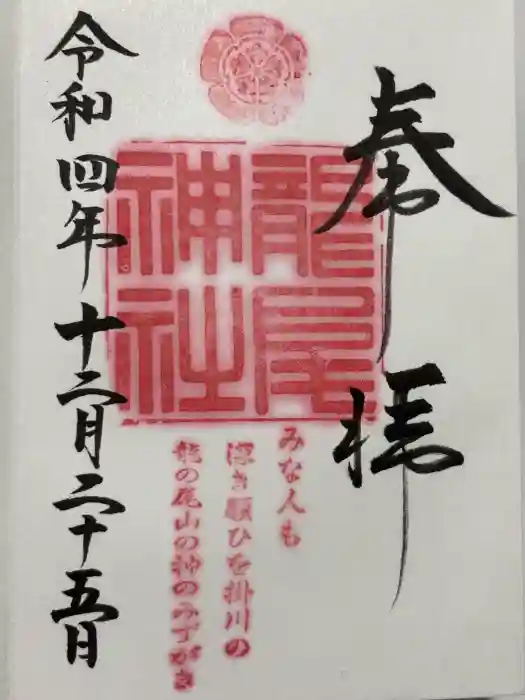 奉拝
龍尾
神社
みな人も
深き願ひを掛川の
龍の尾山の神のみづがき
令和四年十二月二十五日